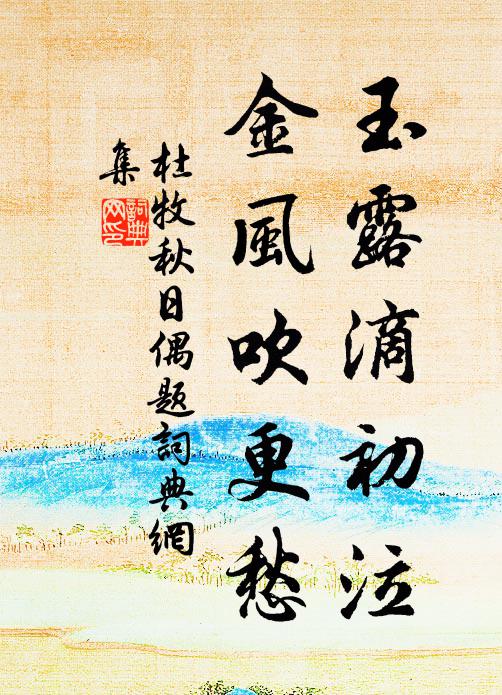 玉露滴初泣
金風吹更愁
杜牧秋日偶題詞典網
集
詞典
网印